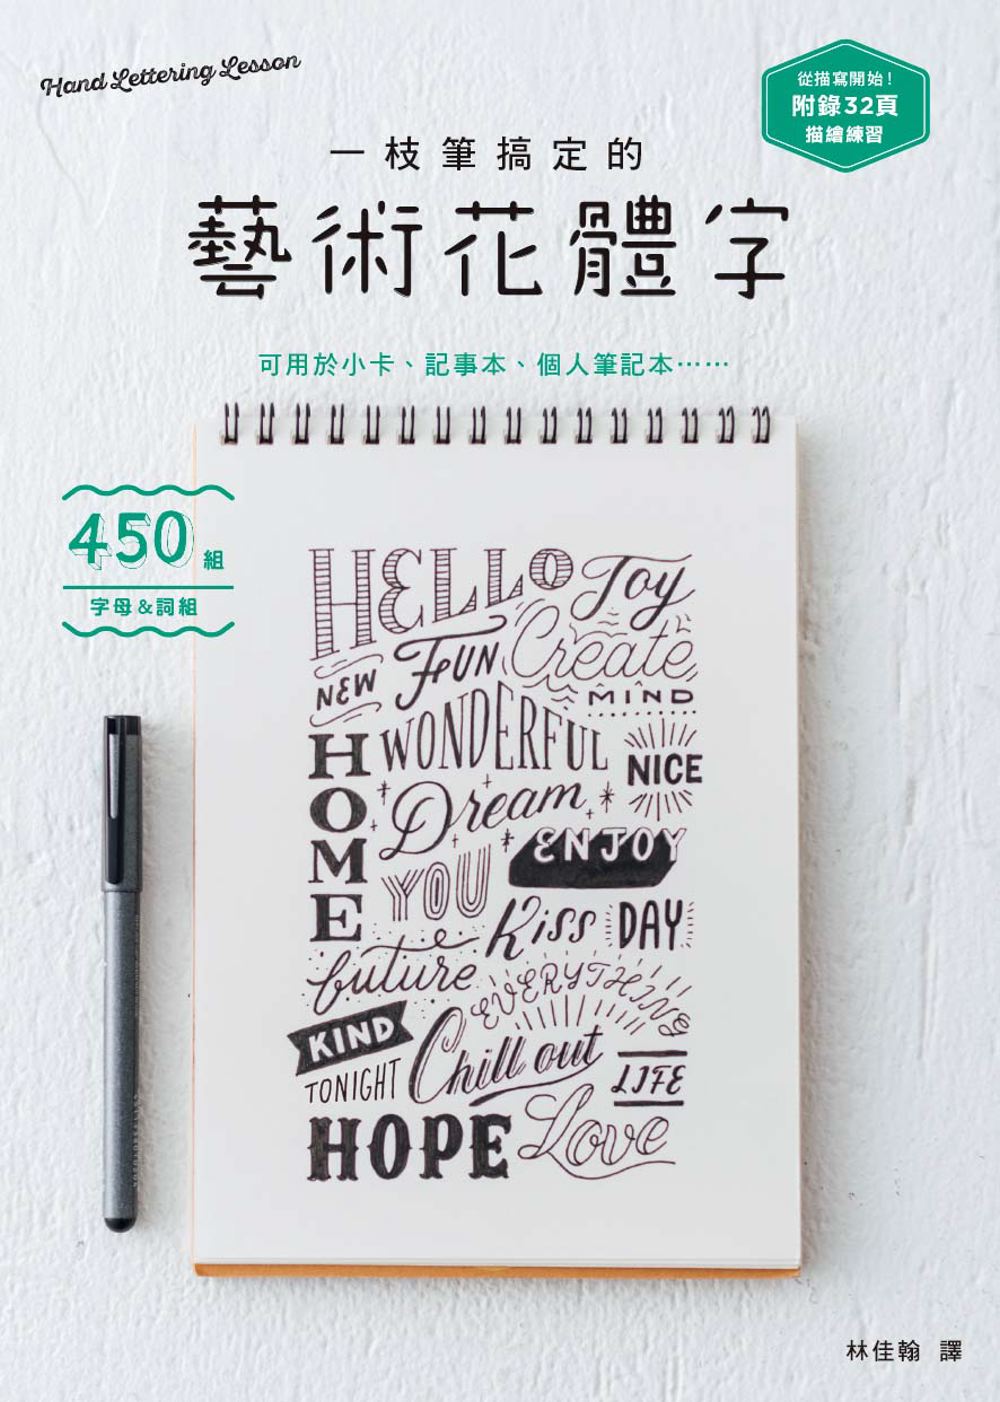 Hand Lettering Lesson
從描寫開始！
附錄32頁
描繪練習
一枝筆搞定的
藝術花體字
可用於小卡、記事本、個人筆記本⋯⋯
450組
字母&詞組
HELLO Joy
NEW FUN Create
MIND
HOME WONDERFUL NICE
Dream
ENJOY
YOU
Kiss DAY
future EVERYTHING
KIND Chill out
TONIGHT LIFE
HOPE Love
林佳翰 譯